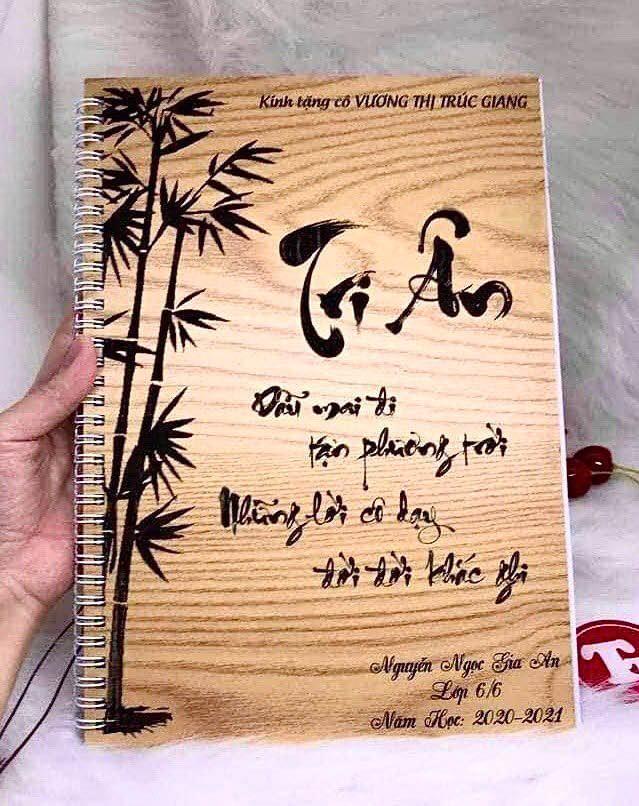 Kính tặng cô VƯƠNG THỊ TRÚC GIANG
Tri Ân
Dẫu mai đi
tận phương trời
Những lời cô dạy
đời đời khắc ghi
Nguyễn Ngọc Gia An
Lớp 6/6
Năm Học: 2020-2021